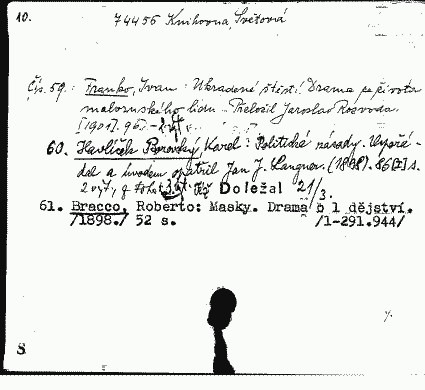 10.
74456 Knihovna Světová
Čís. 59.: Franko, Ivan: Ukradené štěstí. Drama ze života
maloruského lidu. Přeložil Jaroslav Rozvoda.
[1901]. 96.
60. Havlíček Borovský Karel: Politické názory. Uspořá-
dal a úvodem opatřil Jan J. Langner. (1898). 86 [I] s.
2 výt, Doležal 21/3.
61. Bracco, Roberto: Masky. Drama o 1 dějství.
/1898./ 52 s. /1-291.944/
S